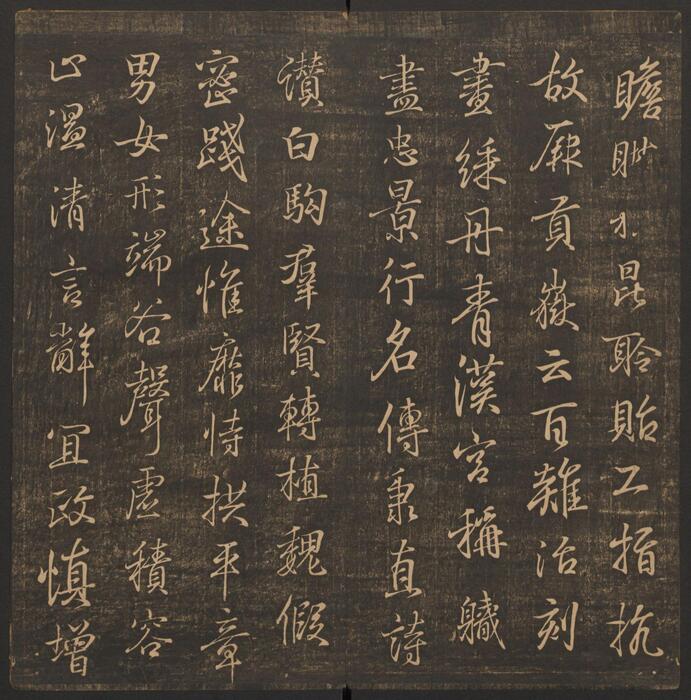 瞻眺才昆聆貽工指抗
故厥貢嶽云百雜治刻
畫綵丹青漢宮稱職
盡忠景行名傳秉直詩
讚白駒羣賢轉植魏假
密踐途惟靡恃拱平章
男女形端谷聲虛積容
止溫清言辭宜政慎增